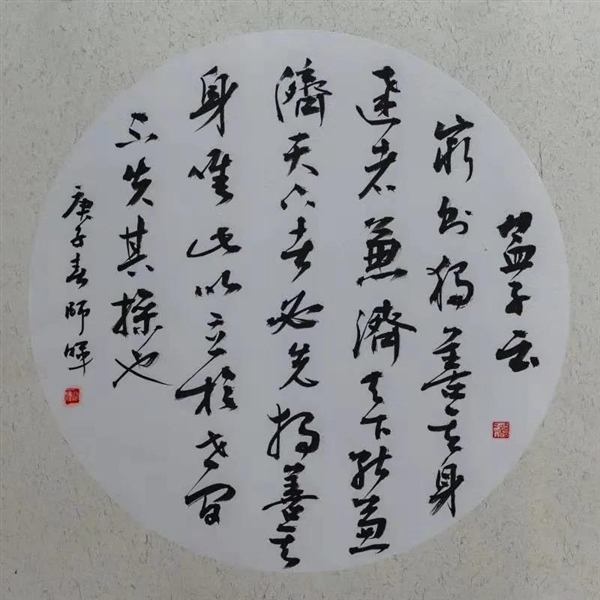 孟子云
窮則獨善其身
達者兼濟天下能兼
濟天下者必先獨善其
身唯此以立於世間
不失其操也
庚子春師暉